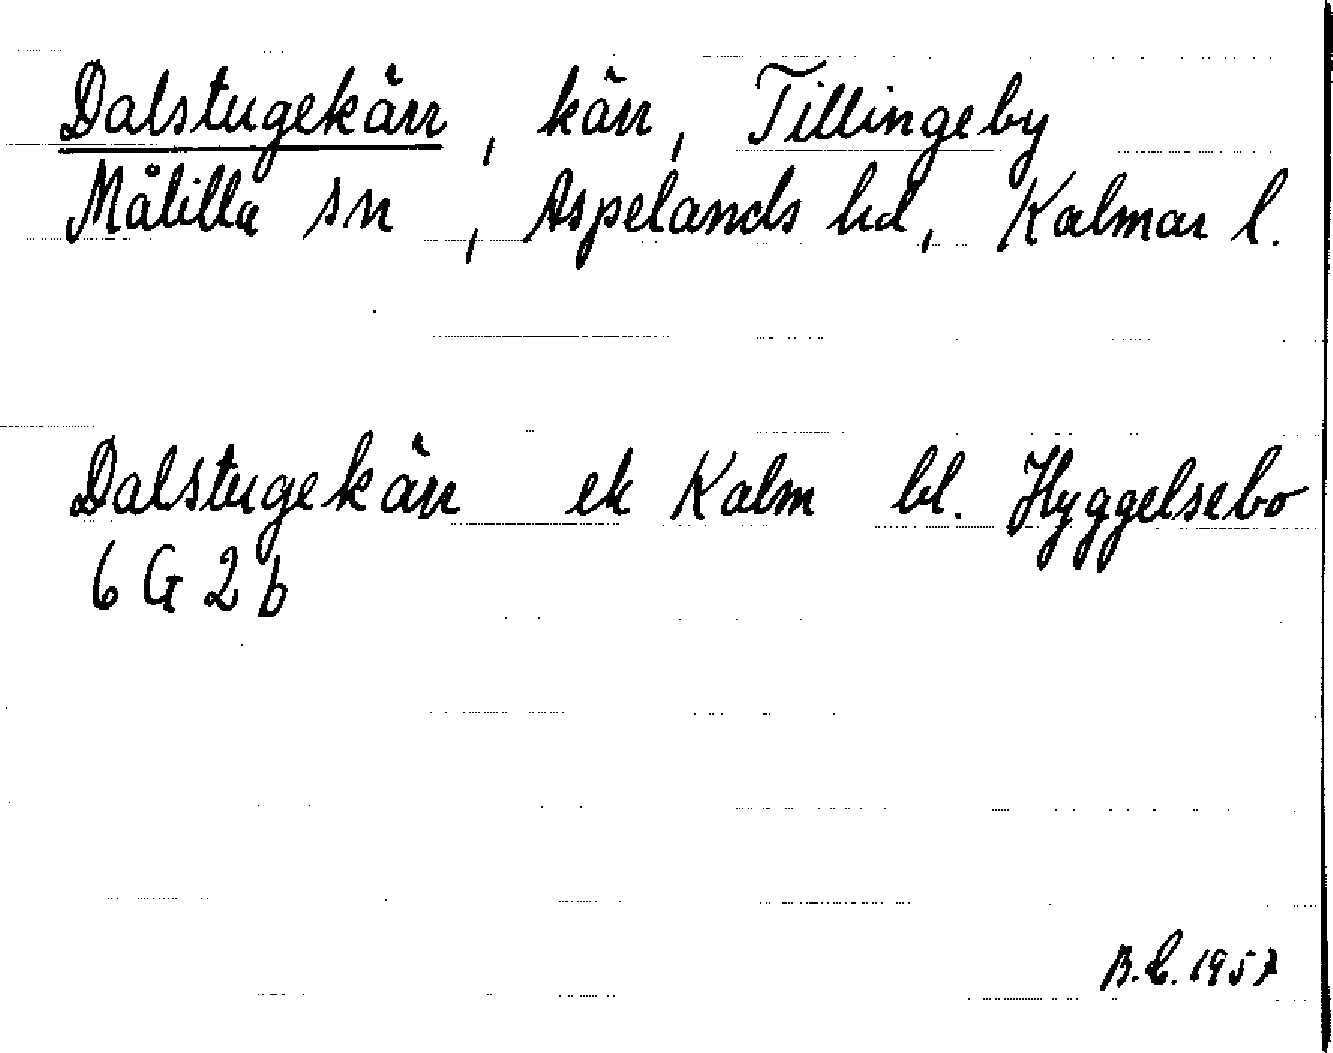 Dalstugekärr, kärr, Tillingeby
Målilla sn, Aspelands hd, Kalmar l.
Dalstugekärr ek Kalm bl. Hyggelsebo
6 G 2 b
B.L. 1957